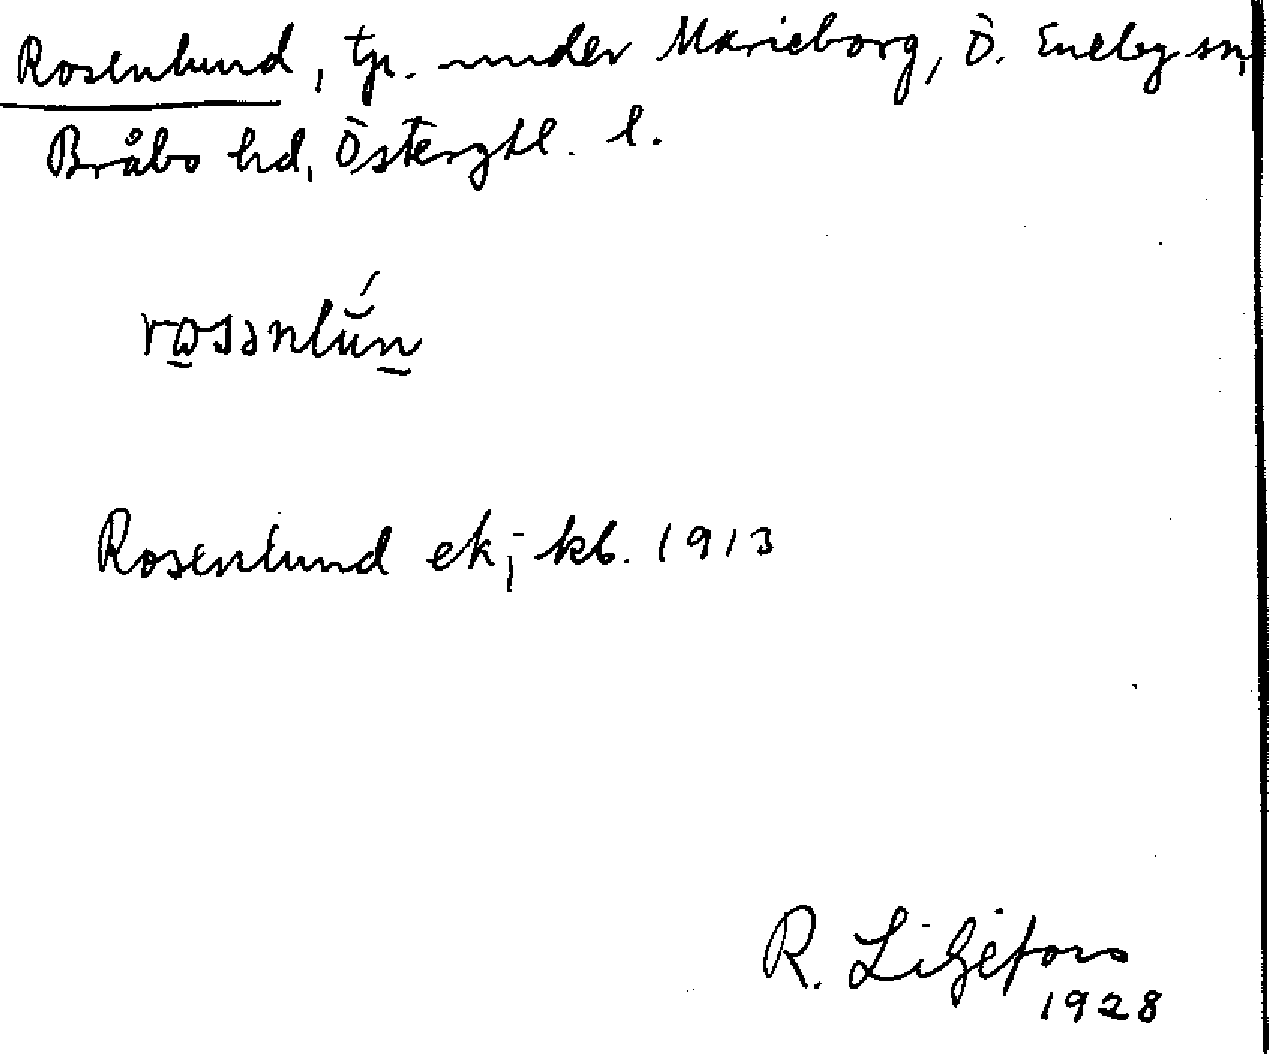 Rosenlund, tp. under Marieborg, Ö. Eneby sn,
Bråbo hd, Östergtl. l.
rɷsənlŭ́n
Rosenlund ek, kb. 1913
R. Liljefors
1928